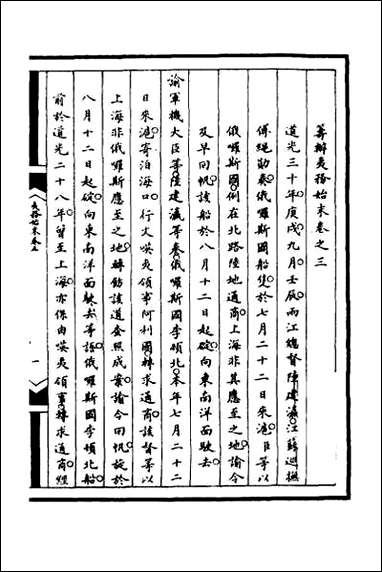 籌辦夷務始末卷之三
道光三十年庚戌九月壬辰兩江總督陸建瀛江蘇巡撫
傅繩勛奏俄羅斯國船隻於七月二十二日來滬臣等以
俄囉斯國例在北路陸地通商上海非其應至之地諭令
及早回帆該船於八月十二日起碇向東南洋面駛去
諭軍機大臣等陸建瀛等奏俄羅斯國李頓北本年七月二十二
日來滬寄泊海口行文㗸夷領事阿利國轉求通商該督等以
上海非俄羅斯應至之地轉飭該道查照成案諭令回帆旋於
八月十二日起碇向東南洋面駛去等語俄羅斯國李頓北船
前於道光二十八年曾至上海亦係由㗸夷領事轉求通商經
夷務始末卷三
一